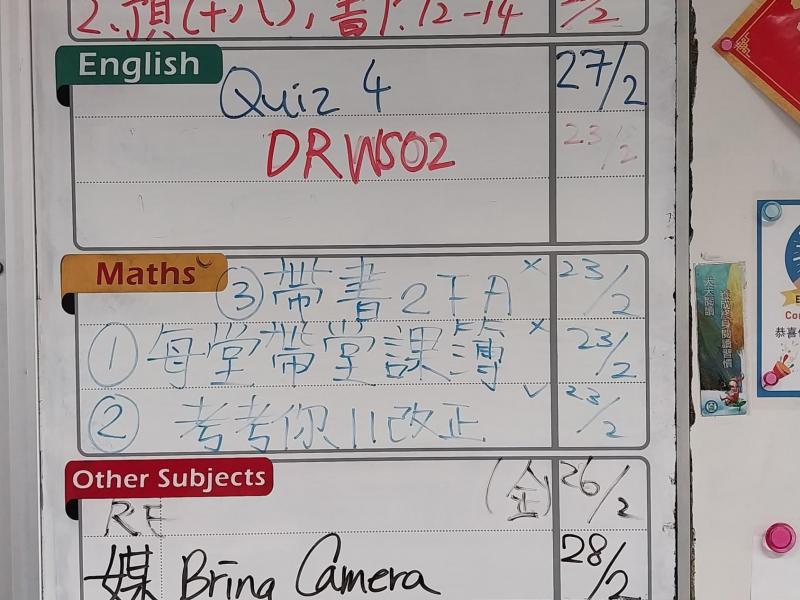 2. 頂(十八), 書P.12-14
English
Quiz 4 27/2
DRWS02 23/2
Maths
③ 帶書2下A × 23/2
① 每堂帶堂課簿 × 23/2
② 考考你11改正 ✓ 23/2
Other Subjects
RE (金) 26/2
媒 Bring Camera 28/2
天天閱讀